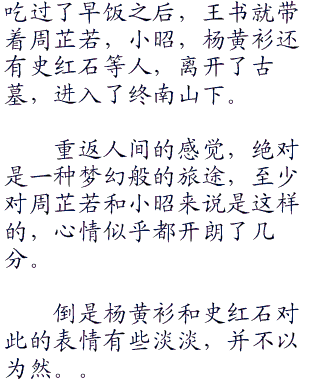 吃过了早饭之后，王书就带
着周芷若，小昭，杨黄衫还
有史红石等人，离开了古
墓，进入了终南山下。
重返人间的感觉，绝对
是一种梦幻般的旅途，至少
对周芷若和小昭来说是这样
的，心情似乎都开朗了几
分。
倒是杨黄衫和史红石对
此的表情有些淡淡，并不以
为然。。